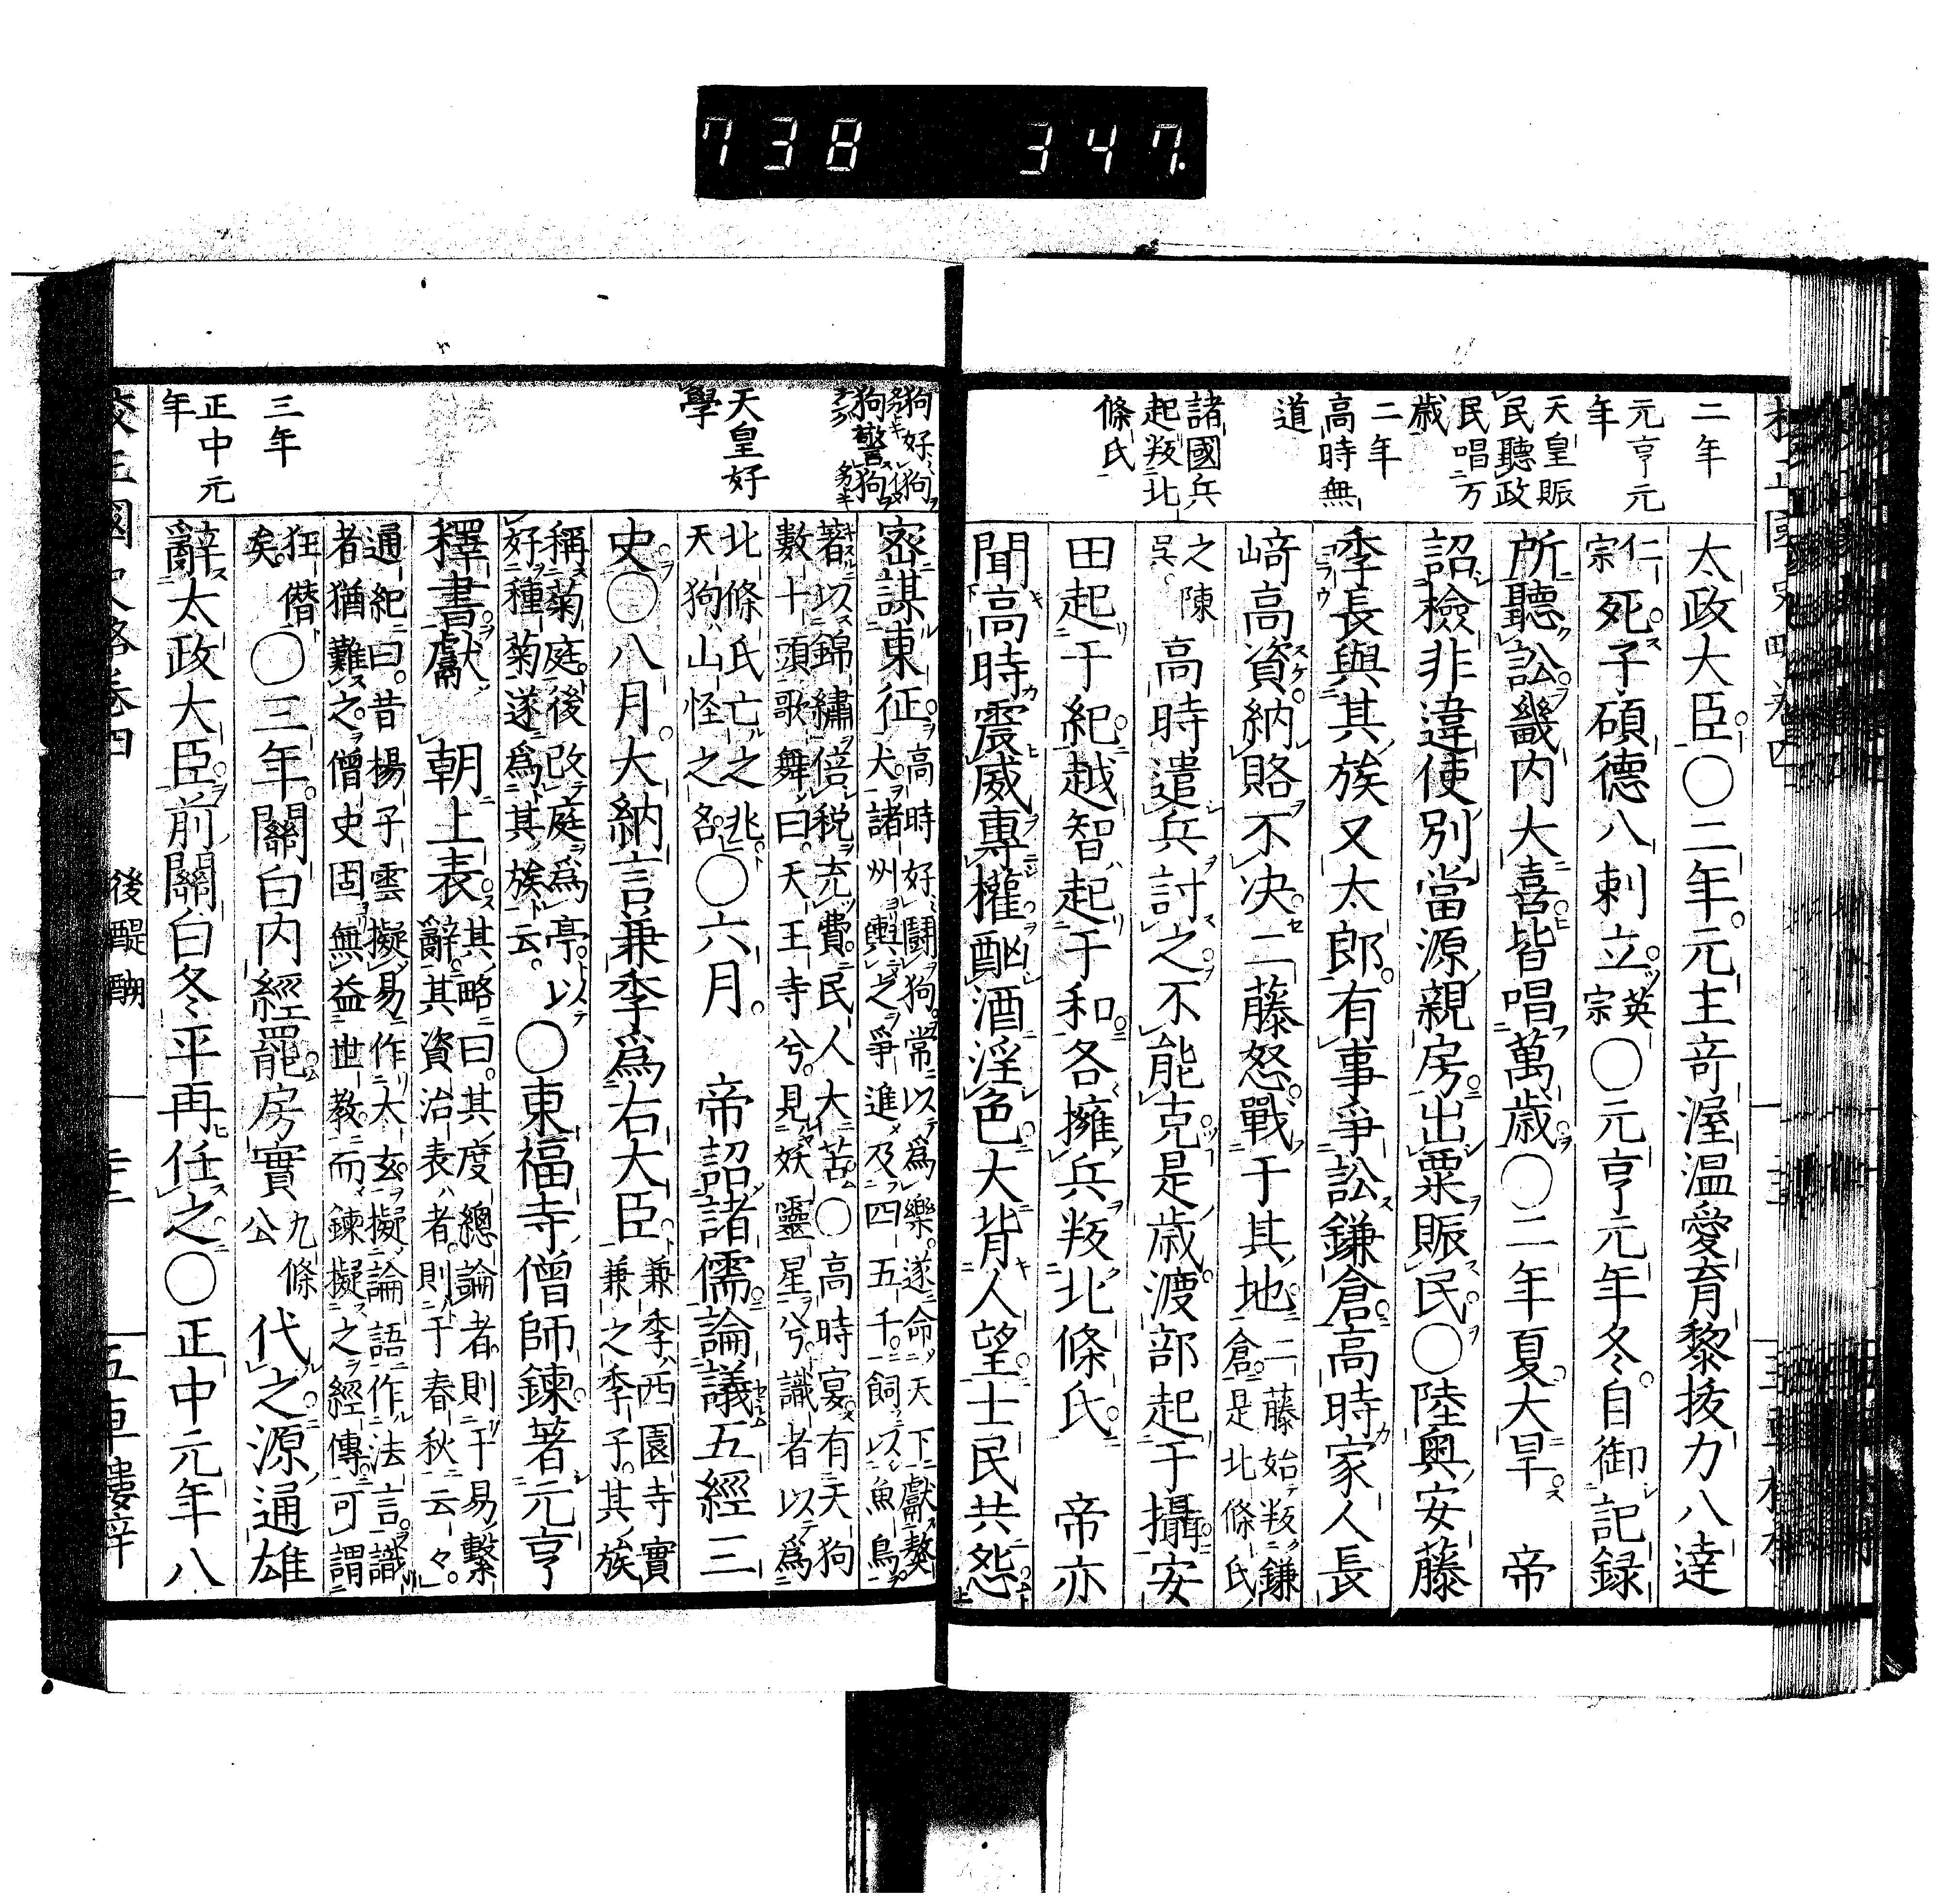 738 347.
二年
元亨元年
天皇賑民聽政
民唱万歲
二年
高時無道
諸國兵起叛北條氏
太政大臣○二年元主竒渥温愛育黎拔力八達
仁宗死子碩德八剌立英宗○元亨元年冬自御記録
所聽訟畿内大喜皆唱萬歳○二年夏大旱 帝
詔檢非違使別當源親房出粟賑民○陸奥安藤
季長與其族又太郎有事爭訟鎌倉高時家人長
﨑高資納賂不决二藤怒戰于其地二藤始叛鎌倉是北條氏
之陳吳高時遣兵討之不能克是歳渡部起于攝安
田起于紀越智起于和各擁兵叛北條氏 帝亦
聞高時震威專權酗酒淫色大背人望士民共怨
狗好狗
狗警狗
天皇好學
三年
正中元年
密謀東征高時好鬪狗常以為樂遂命天下獻獒
犬諸州輿之爭進及四五千飼以魚鳥
著以錦繡倍税充費民人大苦○高時宴有天狗
數十頭歌舞曰天王寺兮見妖靈星兮識者以為
北條氏亡之兆
天狗山怪之名○六月 帝詔諸儒論議五經三
史○八月大納言兼季為右大臣兼季西園寺實兼之季子其族
稱菊庭後改庭為亭以
好種菊遂為其族云○東福寺僧師鍊著元亨
釋書獻 朝上表其略曰其度總論者則于易繫
辭其資治表者則于春秋云々
通紀曰昔楊子雲擬易作太玄擬論語作法言識
者猶難之僧史固無益世教而鍊擬之經傳可謂
狂僭矣○三年關白内經罷房實九條公代之源通雄
辭太政大臣前關白冬平再任之○正中元年八
後醍醐